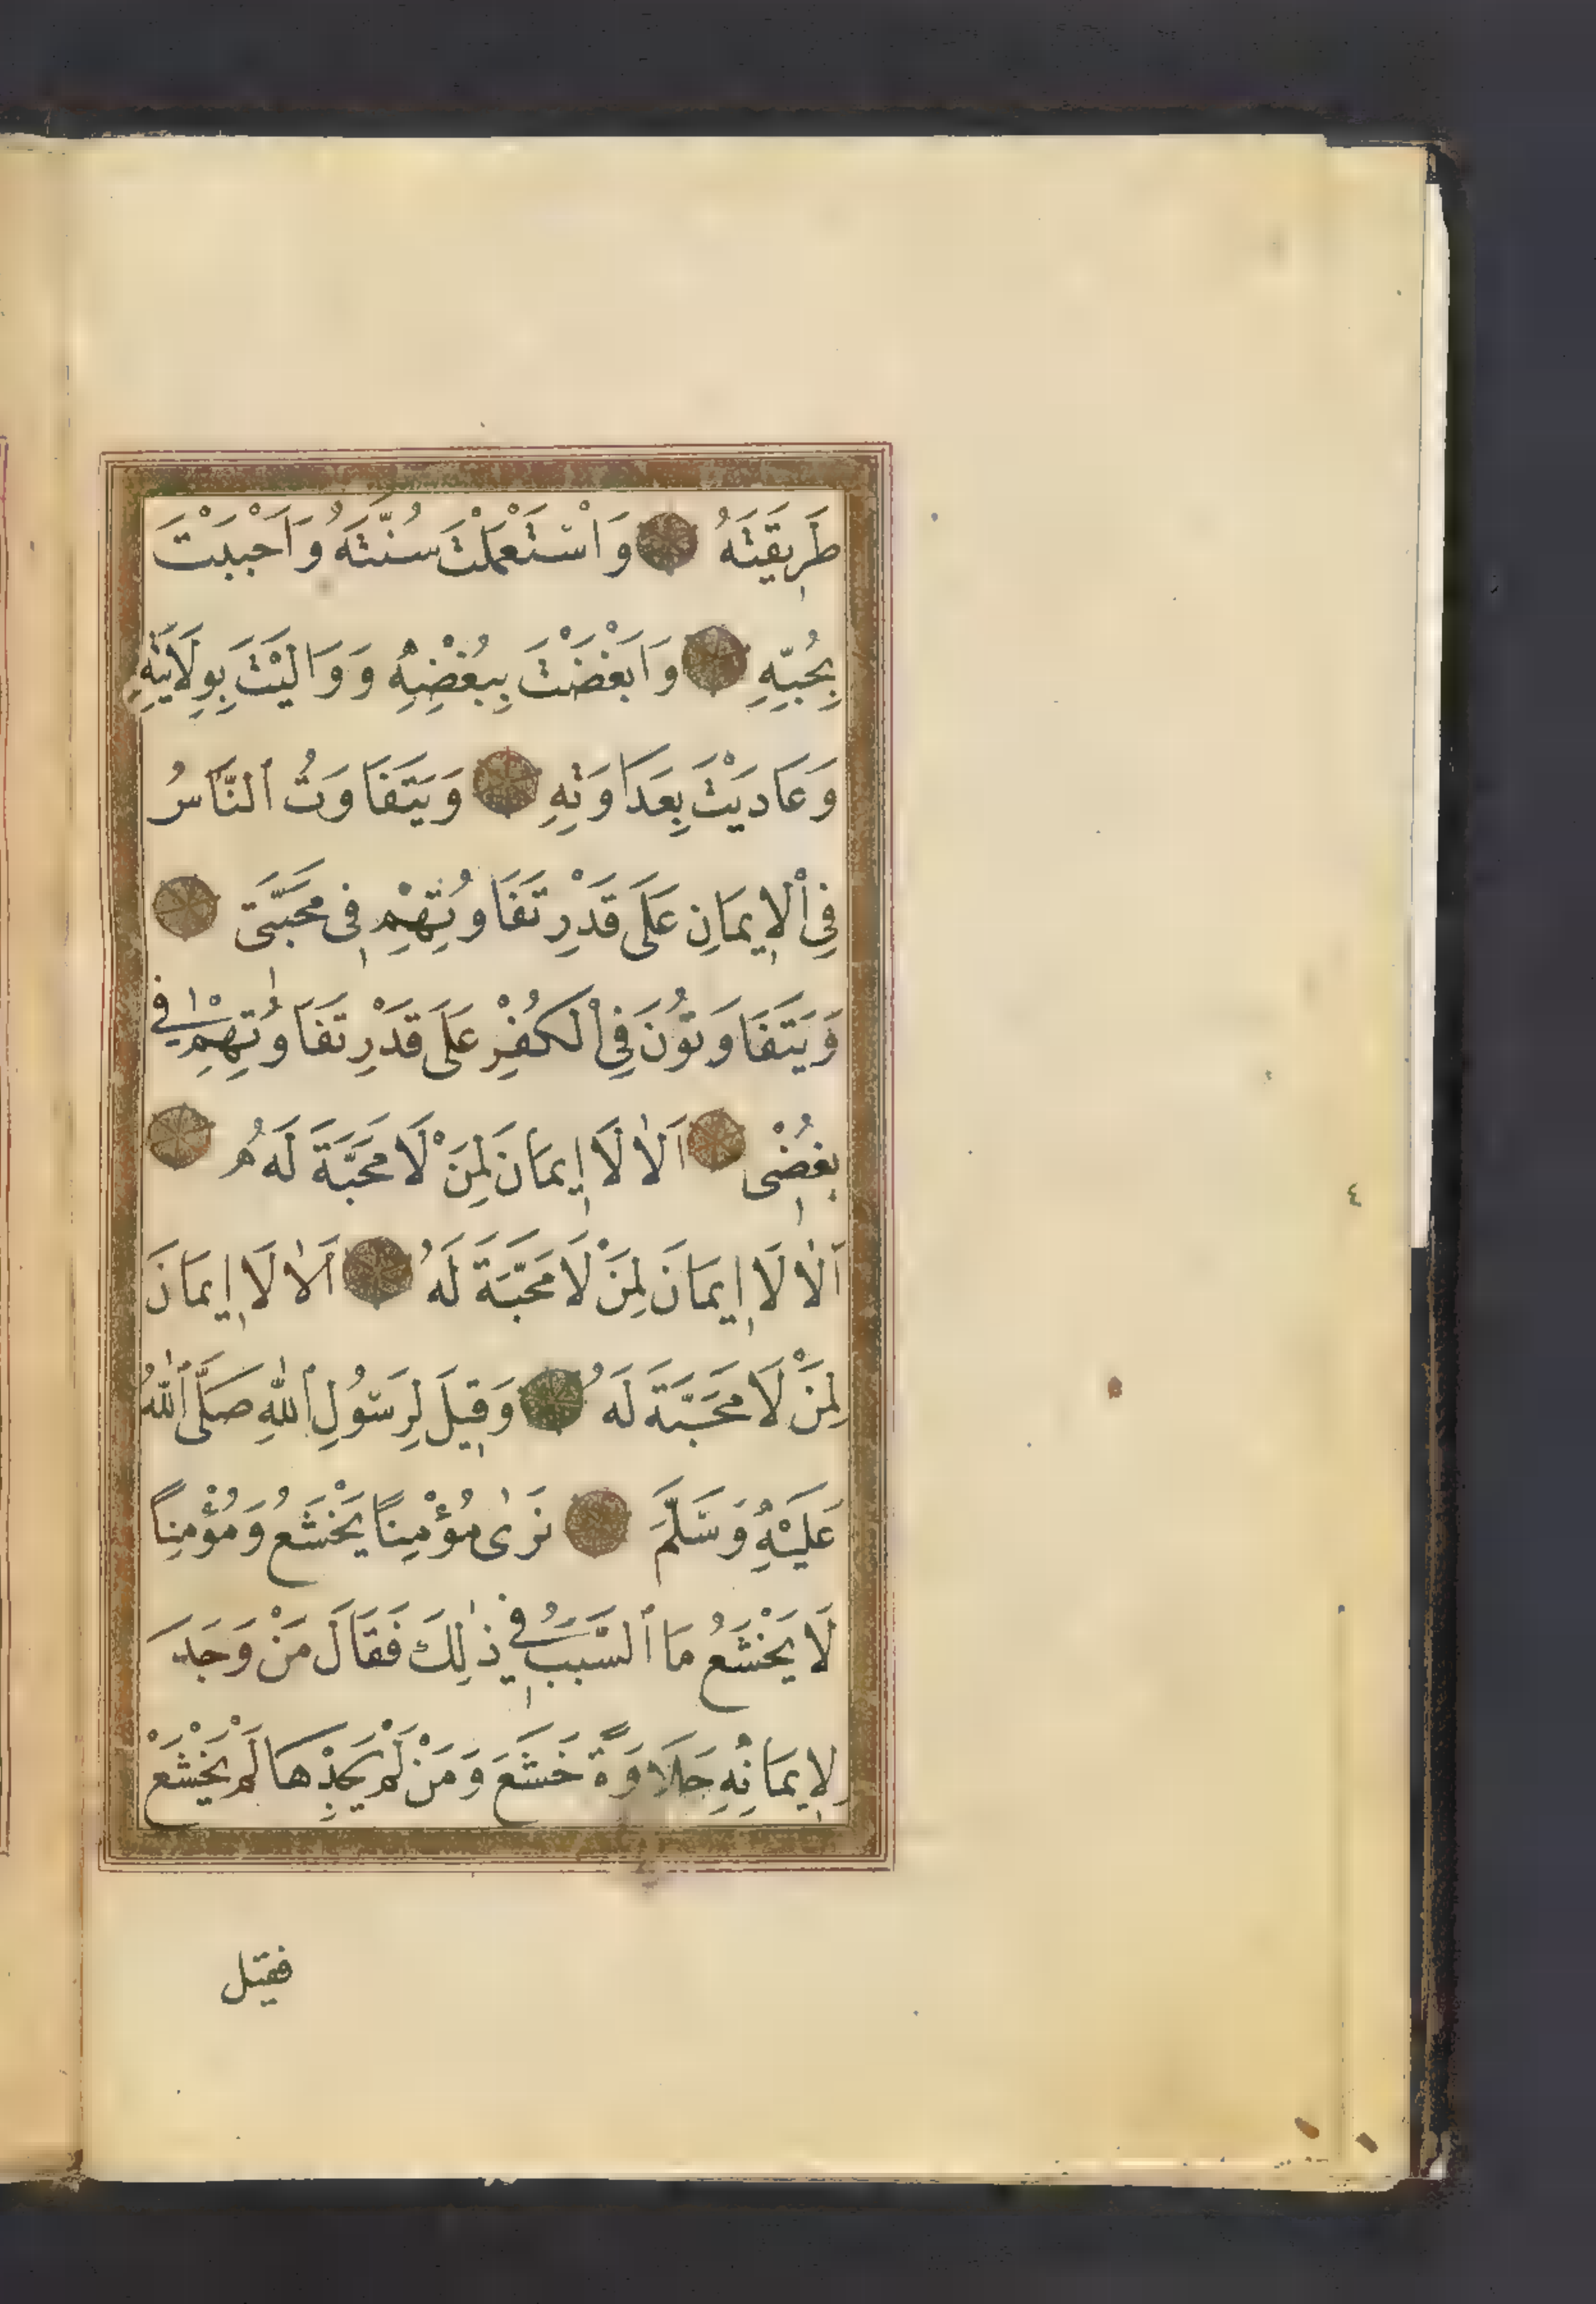 طَرِيقَتَهُ وَاسْتَعْمَلْتَ سُنَّتَهُ وَاَحْبَبْتَ
بِحُبِّهِ وَاَبْغَضْتَ بِبُغْضِهِ وَوَالَيْتَ بِوِلَايَتِهِ
وَعَادَيْتَ بِعَدَاوَتِهِ وَيَتَفَاوَتُ ٱلنَّاسُ
فِي ٱلْإِيمَانِ عَلَى قَدْرِ تَفَاوُتِهِمْ فِى مَحَبَّتِى
وَيَتَفَاوَتُونَ فِي ٱلْكُفْرِ عَلَى قَدْرِ تَفَاوُتِهِمْ فِي
بُغْضِى اَلَا لَا إِيمَانَ لِمَنْ لَا مَحَبَّةَ لَهُ
اَلَا لَا إِيمَانَ لِمَنْ لَا مَحَبَّةَ لَهُ اَلَا لَا إِيمَانَ
لِمَنْ لَا مَحَبَّةَ لَهُ وَقِيلَ لِرَسُولِ ٱللّٰهِ صَلَّى ٱللّٰهُ
عَلَيْهِ وَسَلَّمَ نَرٰى مُؤْمِنًا يَخْشَعُ وَمُؤْمِنًا
لَا يَخْشَعُ مَا ٱلسَّبَبُ فِي ذٰلِكَ فَقَالَ مَنْ وَجَدَ
لِإِيمَانِهِ حَلَاوَةً خَشَعَ وَمَنْ لَمْ يَجِدْهَا لَمْ يَخْشَعْ
فقيل
٤